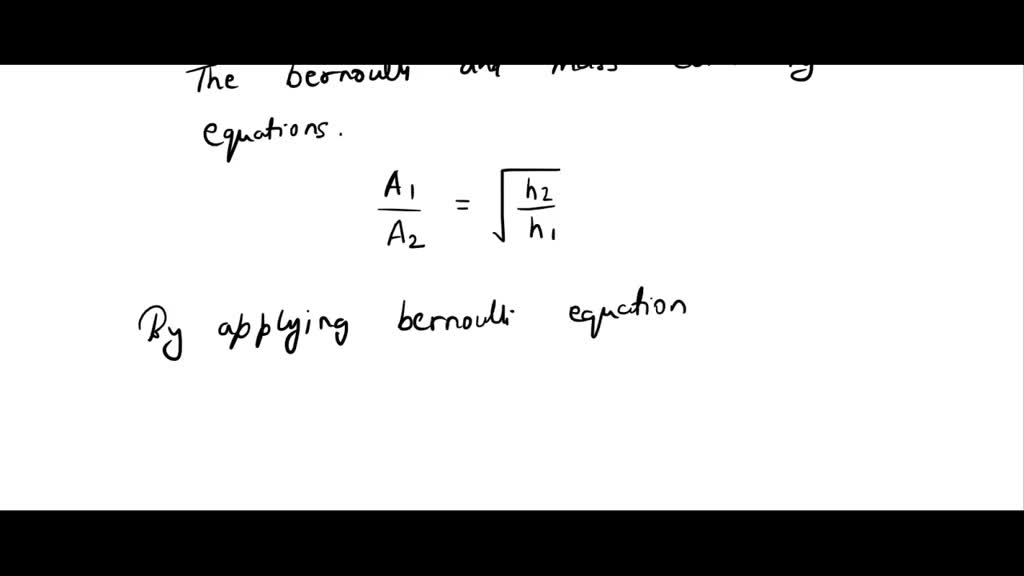 The bernoulli and mass
equations.
A1/A2 = √(h2/h1)
By applying bernoulli equation